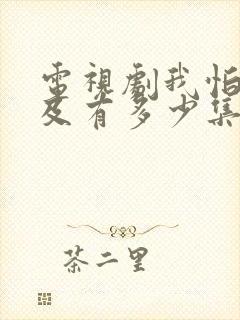 電視劇我怕
及有多少集
茶二里